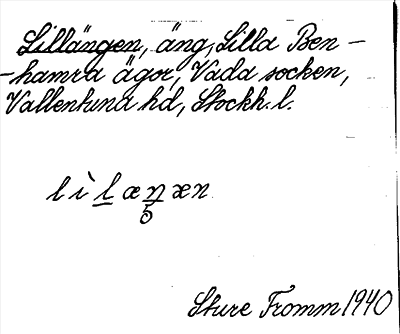 Lillängen, äng, Lilla Ben-
-hamra ägor, Vada socken,
Vallentuna hd, Stockh. l.
Sture Fromm 1940